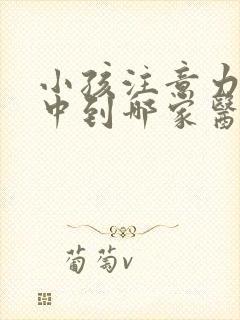 小孩注意力
中到哪家醫
葡萄v